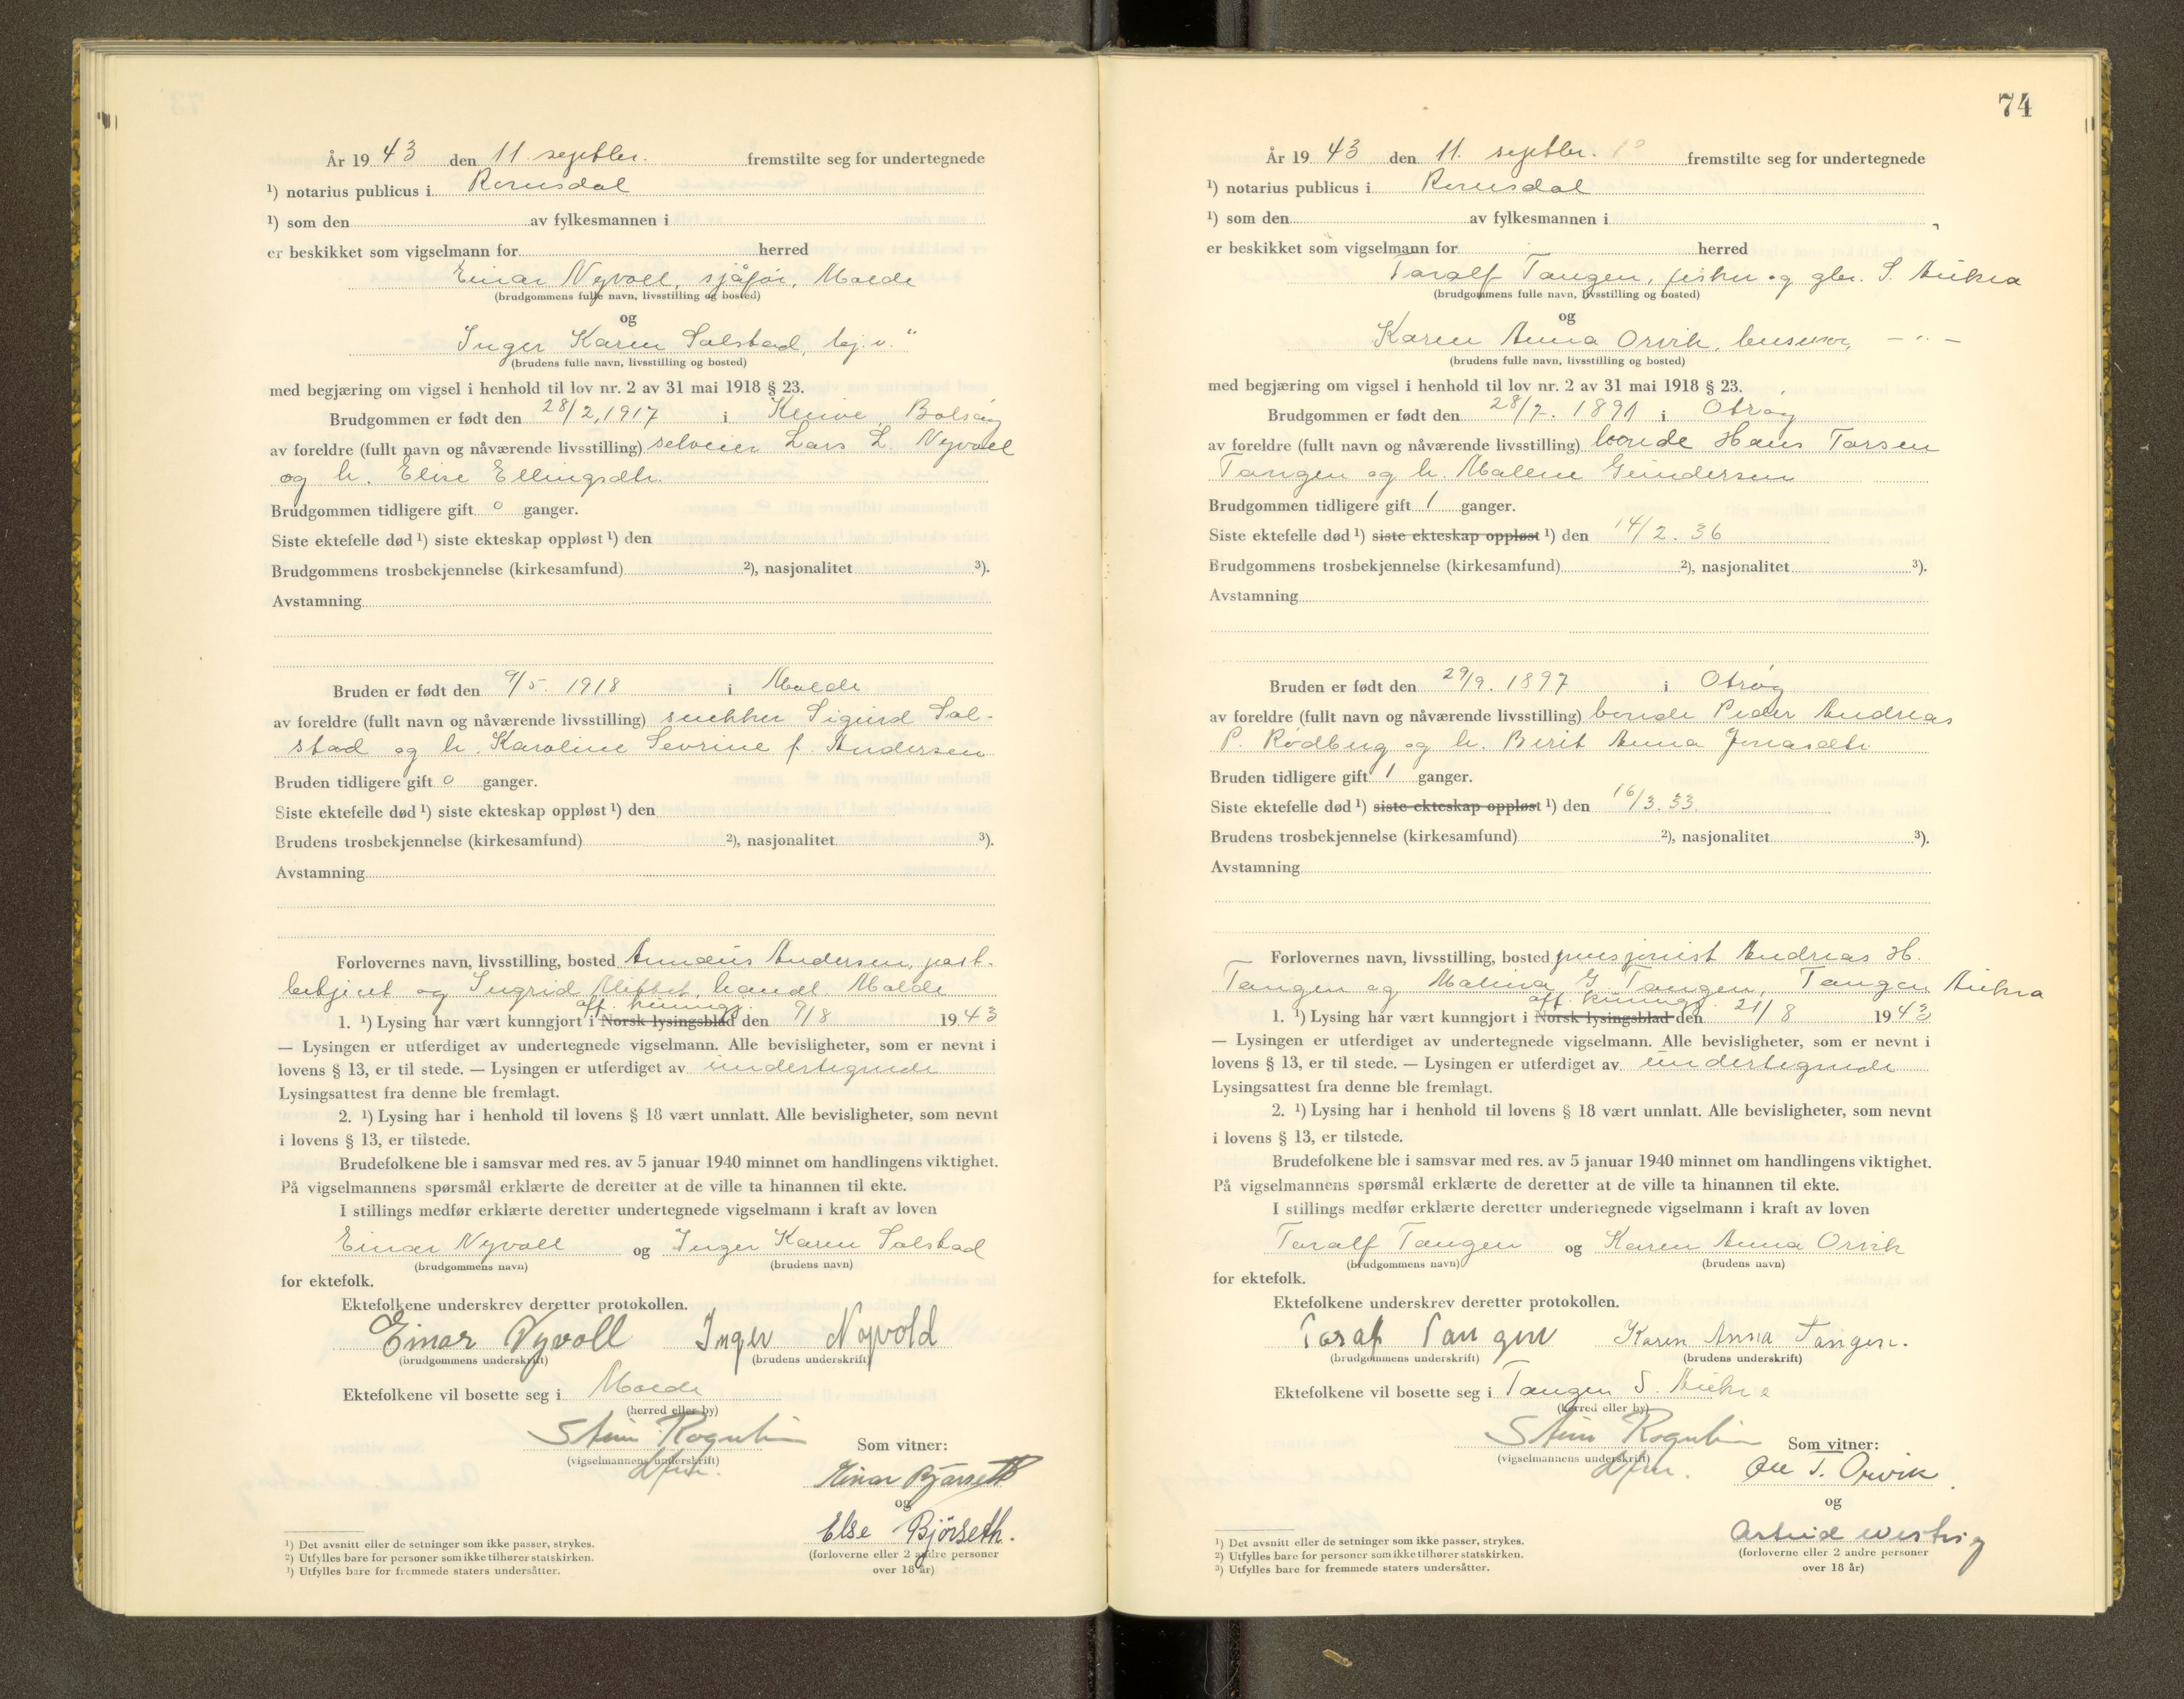 År 19 43 den 11. septbr. fremstilte seg for undertegnede
¹) notarius publicus i Romsdal
¹) som den av fylkesmannen i
er beskikket som vigselmann for herred
Einar Nyvoll, sjåfør, Molde
(brudgommens fulle navn, livsstilling og bosted)
og
Inger Karen Solstad, hj.v. "
(brudens fulle navn, livsstilling og bosted)
med begjæring om vigsel i henhold til lov nr. 2 av 31 mai 1918 § 23.
Brudgommen er født den 28/2, 1917 i Kleive, Bolsøy
av foreldre (fullt navn og nåværende livsstilling) selveier Lars L. Nyvoll
og h. Elise Ellingsdtr.
Brudgommen tidligere gift 0 ganger.
Siste ektefelle død ¹) siste ekteskap oppløst ¹) den
Brudgommens trosbekjennelse (kirkesamfund) ²), nasjonalitet ³).
Avstamning
Bruden er født den 9/5. 1918 i Molde
av foreldre (fullt navn og nåværende livsstilling) snekker Sigurd Sol-
stad og h. Karoline Sevrine f. Andersen
Bruden tidligere gift 0 ganger.
Siste ektefelle død ¹) siste ekteskap oppløst ¹) den
Brudens trosbekjennelse (kirkesamfund) ²), nasjonalitet ³).
Avstamning
Forlovernes navn, livsstilling, bosted Annæus Andersen, post-
betjent og Ingrid handl. Molde
off. kunngj.
1. ¹) Lysing har vært kunngjort i Norsk lysingsblad den 9/8 19 43
— Lysingen er utferdiget av undertegnede vigselmann. Alle bevisligheter, som er nevnt i
lovens § 13, er til stede. — Lysingen er utferdiget av undertegnede
Lysingsattest fra denne ble fremlagt.
2. ¹) Lysing har i henhold til lovens § 18 vært unnlatt. Alle bevisligheter, som nevnt
i lovens § 13, er tilstede.
Brudefolkene ble i samsvar med res. av 5 januar 1940 minnet om handlingens viktighet.
På vigselmannens spørsmål erklærte de deretter at de ville ta hinannen til ekte.
I stillings medfør erklærte deretter undertegnede vigselmann i kraft av loven
Einar Nyvoll og Inger Karen Solstad
(brudgommens navn) (brudens navn)
for ektefolk.
Ektefolkene underskrev deretter protokollen.
Einar Nyvoll Inger Nyvold
(brudgommens underskrift) (brudens underskrift)
Ektefolkene vil bosette seg i Molde
(herred eller by)
Stein Rognlien
Som vitner:
(vigselmannens underskrift)
dfm.
Einar Bjørseth
og
Else Bjørseth.
(forloverne eller 2 andre personer
over 18 år)
¹) Det avsnitt eller de setninger som ikke passer, strykes.
²) Utfylles bare for personer som ikke tilhører statskirken.
³) Utfylles bare for fremmede staters undersåtter.
74
År 19 43 den 11. septbr. fremstilte seg for undertegnede
¹) notarius publicus i Romsdal
¹) som den av fylkesmannen i
er beskikket som vigselmann for herred
Toralf Tangen, fisker og gbr. S. Aukra
(brudgommens fulle navn, livsstilling og bosted)
og
Karen Anna Orvik, husmor, — " —
(brudens fulle navn, livsstilling og bosted)
med begjæring om vigsel i henhold til lov nr. 2 av 31 mai 1918 § 23.
Brudgommen er født den 28/7. 1891 i Otrøy
av foreldre (fullt navn og nåværende livsstilling) bonde Hans Tarsen
Tangen og h. Malene Gundersen
Brudgommen tidligere gift 1 ganger.
Siste ektefelle død ¹) siste ekteskap oppløst ¹) den 14/2. 36
Brudgommens trosbekjennelse (kirkesamfund) ²), nasjonalitet ³).
Avstamning
Bruden er født den 29/9. 1897 i Otrøy
av foreldre (fullt navn og nåværende livsstilling) bonde Peder Andreas
P. Rødberg og h. Berit Anna Jonasdtr
Bruden tidligere gift 1 ganger.
Siste ektefelle død ¹) siste ekteskap oppløst ¹) den 16/3. 33.
Brudens trosbekjennelse (kirkesamfund) ²), nasjonalitet ³).
Avstamning
Forlovernes navn, livsstilling, bosted pensjonist Andreas H.
Tangen og Malina G. Tangen, Tangen Aukra
off. kunngj.
1. ¹) Lysing har vært kunngjort i Norsk lysingsblad den 21/8 19 43
— Lysingen er utferdiget av undertegnede vigselmann. Alle bevisligheter, som er nevnt i
lovens § 13, er til stede. — Lysingen er utferdiget av undertegnede
Lysingsattest fra denne ble fremlagt.
2. ¹) Lysing har i henhold til lovens § 18 vært unnlatt. Alle bevisligheter, som nevnt
i lovens § 13, er tilstede.
Brudefolkene ble i samsvar med res. av 5 januar 1940 minnet om handlingens viktighet.
På vigselmannens spørsmål erklærte de deretter at de ville ta hinannen til ekte.
I stillings medfør erklærte deretter undertegnede vigselmann i kraft av loven
Toralf Tangen og Karen Anna Orvik
(brudgommens navn) (brudens navn)
for ektefolk.
Ektefolkene underskrev deretter protokollen.
Toralf Tangen Karen Anna Tangen.
(brudgommens underskrift) (brudens underskrift)
Ektefolkene vil bosette seg i Tangen S. Aukra
(herred eller by)
Stein Rognlien
Som vitner:
(vigselmannens underskrift)
dfm.
Ole T. Orvik
og
Astrid
(forloverne eller 2 andre personer
over 18 år)
¹) Det avsnitt eller de setninger som ikke passer, strykes.
²) Utfylles bare for personer som ikke tilhører statskirken.
³) Utfylles bare for fremmede staters undersåtter.